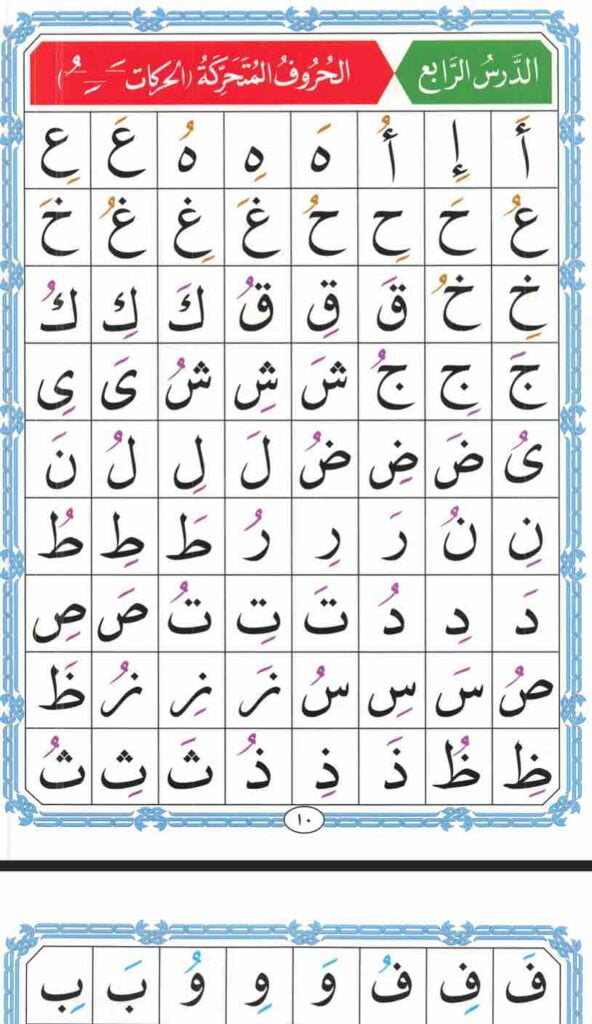 الدَّرسُ الرَّابع
الحُرُوفُ المُتَحَرِّكَةُ (الحركات ـَـِـُ)
أَ إِ أُ هَ هِ هُ عَ عِ
عُ حَ حِ حُ غَ غِ غُ خَ
خِ خُ قَ قِ قُ كَ كِ كُ
جَ جِ جُ شَ شِ شُ ىَ ىِ
ىُ ضَ ضِ ضُ لَ لِ لُ نَ
نِ نُ رَ رِ رُ طَ طِ طُ
دَ دِ دُ تَ تِ تُ صَ صِ
صُ سَ سِ سُ زَ زِ زُ ظَ
ظِ ظُ ذَ ذِ ذُ ثَ ثِ ثُ
١٠
فَ فِ فُ وَ وِ وُ بَ بِ